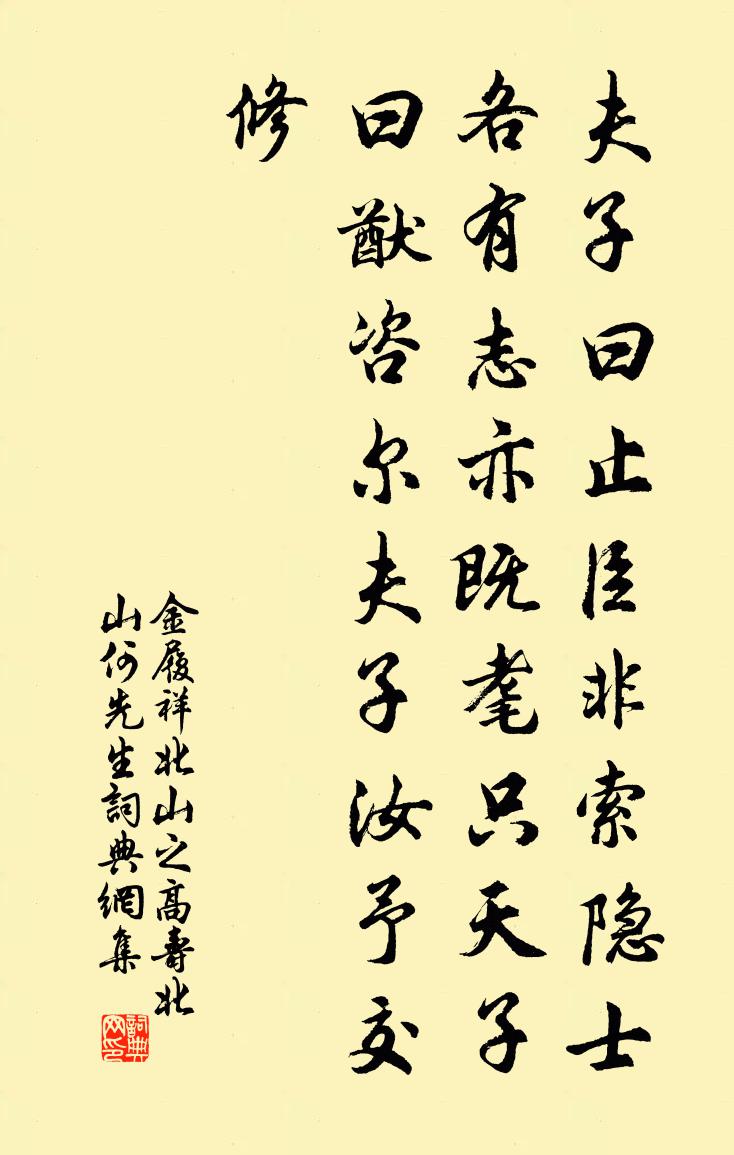 夫子曰止臣非索隐士
各有志亦既耄只天子
曰猷咨尔夫子汝予交
修
金履祥北山之高壽北
山何先生詞典網集
詞典網印